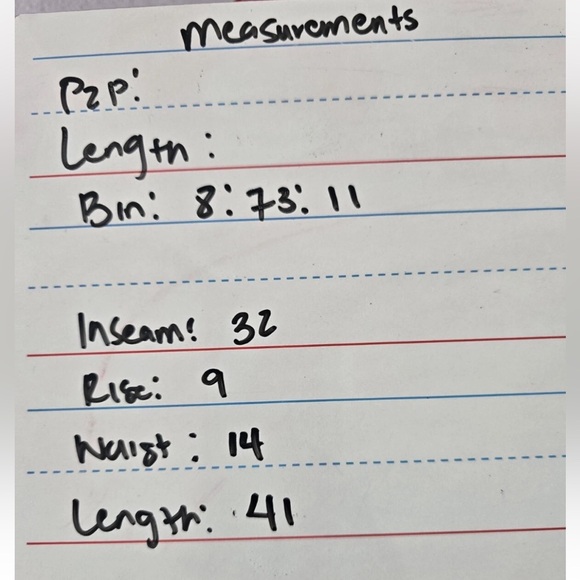 measurements
P2P:
Length:
Bin: 8:73:11
Inseam: 32
Rise: 9
Waist: 14
Length: 41